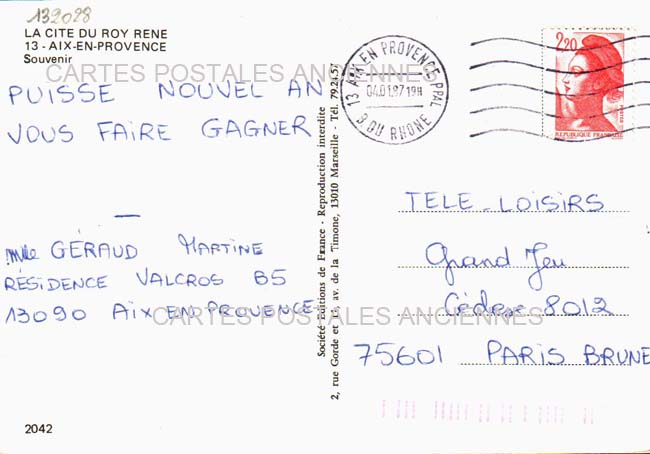 132028
LA CITE DU ROY RENE
13 - AIX-EN-PROVENCE
Souvenir
CARTES POSTALES ANCIENNES
PUISSE NOUVEL AN
VOUS FAIRE GAGNER
Mlle GÉRAUD MARTINE
RÉSIDENCE VALCROS B5
13090 AIX EN PROVENCE
CARTES POSTALES ANCIENNES
2042
Société Editions de France - Reproduction interdite
2, rue Gorde et av. de la Timone, 13010 Marseille - Tél. 79.24.57
13 AIX EN PROVENCE PPAL
04.01.87 19H
B DU RHONE
2,20
REPUBLIQUE FRANÇAISE
TELE-LOISIRS
Grand Jeu
Cédex 8012
75601 PARIS BRUNE